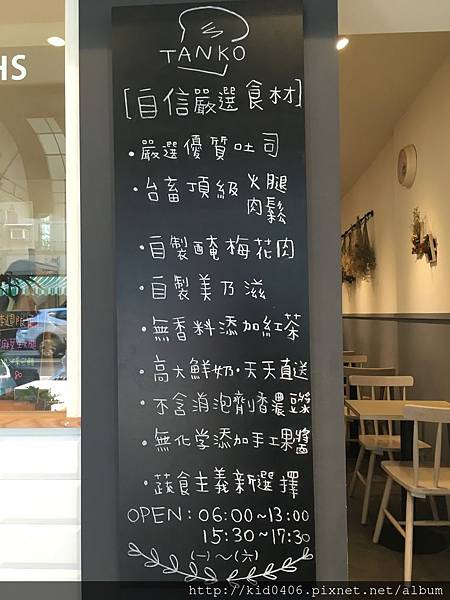 HS
TANKO
[自信嚴選食材]
・嚴選優質吐司
・台畜頂級火腿
肉鬆
・自製醃梅花肉
・自製美乃滋
・無香料添加紅茶
・高大鮮奶・天天直送
・不含消泡劑香濃豆漿
・無化学添加手工果醬
・蔬食主義新選擇
OPEN：06:00~13:00
15:30~17:30
(一)～(六)
80
http://kid0406.pixnet.net/album